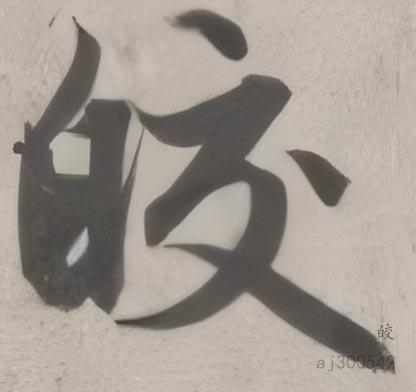 皎
皎
aj300542